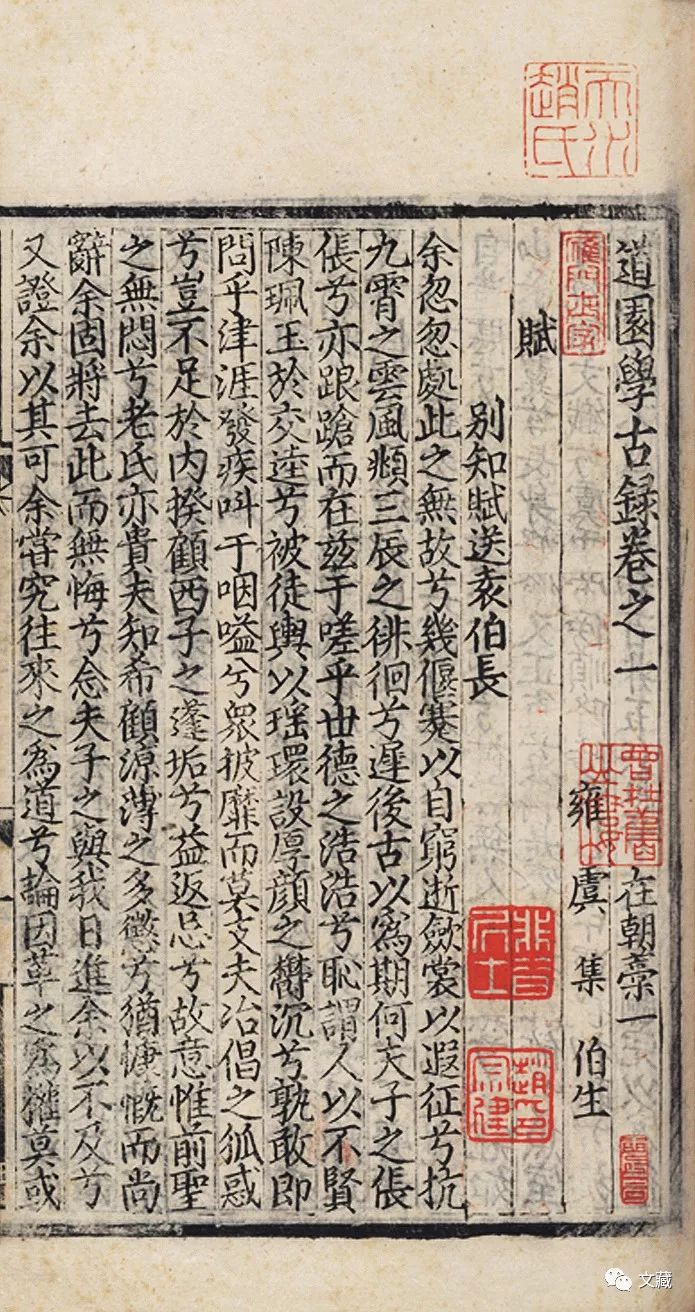 道園學古録卷之一 在朝藁一
雍 虞 集 伯生
賦
别知賦送袁伯長
余忽忽處此之無故兮幾偃蹇以自窮逝斂裳以遐征兮抗
九霄之雲風頫三辰之徘徊兮遲後古以爲期何夫子之倀
倀兮亦踉蹌而在兹于嗟乎世德之浩浩兮恥謂人以不賢
陳珮玉於交逵兮被徒輿以瑶環設厚顔之欝沉兮孰敢即
問乎津涯發疾呌于咽嗌兮衆披靡而莫支夫冶倡之狐惑
兮豈不足於内揆顧西子之蓬垢兮益返忌兮故意惟前聖
之無悶兮老氏亦貴夫知希顧源薄之多愆兮猶慷慨而尚
辭余固將去此而無悔兮念夫子之與我日進余以不及兮
又證余以其可余嘗究往來之爲道兮論因革之爲權莫或
趙氏
文藏